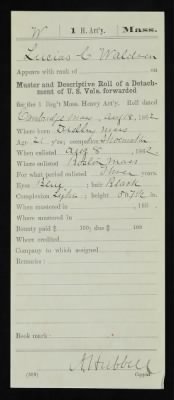 W 1 H. Art'y. Mass.
Lucius C Waldron
Appears with rank of on
Muster and Descriptive Roll of a Detach-
ment of U. S. Vols. forwarded
for the 1 Reg't Mass. Heavy Art'y. Roll dated
Cambridge Mass, Aug 18, 1862
Where born Dudley Mass
Age 21 y'rs; occupation Shoemaker
When enlisted Aug 8, 1862.
Where enlisted Mass
For what period enlisted Three years.
Eyes Blue; hair Black
Complexion Light; height 5 ft. 7½ in.
When mustered in , 186 .
Where mustered in
Bounty paid $ 100; due $ 100
Where credited
Company to which assigned
Remarks:
Book mark:
A Hubbell
(339) Copyist.